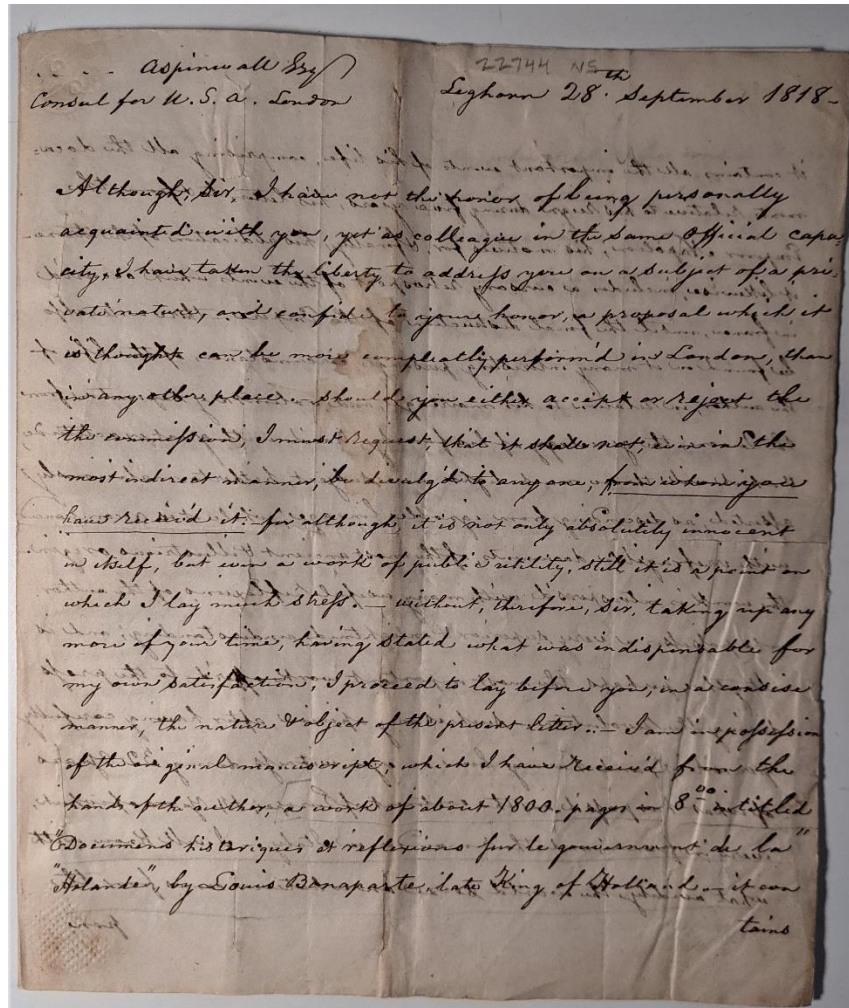 . . . . . Aspinwall Esq
22744 NS
Consul for U. S. A. London
Leghorn 28.th September 1818 -
Although, Sir, I have not the honor of being personally
acquainted with you, yet as colleague in the same Official capa-
city, I have taken the liberty to address you on a subject of a pri-
vate nature, and confide to your honor, a proposal which it
is thought can be more compleatly perform'd in London, than
in any other place. - should you either accept or reject the
the commission, I must request, that it shall not, even in the
most indirect manner, be divulg'd to anyone, from whom you
have receiv'd it: for although, it is not only absolutely innocent
in itself, but even a work of public utility, still it is a point on
which I lay much stress. - without, therefore, Sir, taking up any
more of your time, having stated what was indispensable for
my own satisfaction, I proceed to lay before you, in a consise
manner, the nature & object of the present letter. - I am in possession
of the original manuscript, which I have receiv'd from the
hands of the author, a work of about 1800. pages in 8.oo intitled
"Documens historiques et reflexions sur le gouvernment de la"
"Holande", by Louis Bonaparte, late King of Holland - it con
tains